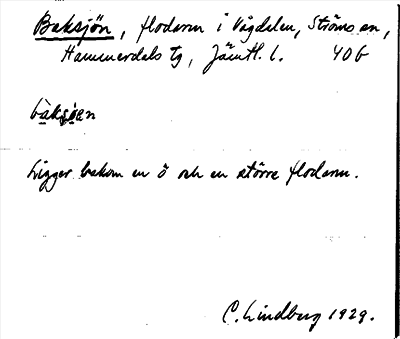 Baksjön, flodarm i Vågdalen, Ströms sn,
Hammerdals tg, Jämtl. l. 40 b
bàksjøen
Ligger bakom en ö och en större flodarm.
C. Lindberg 1929.